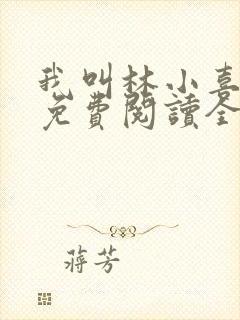 我叫林小喜
免費閱讀全
蔣芳